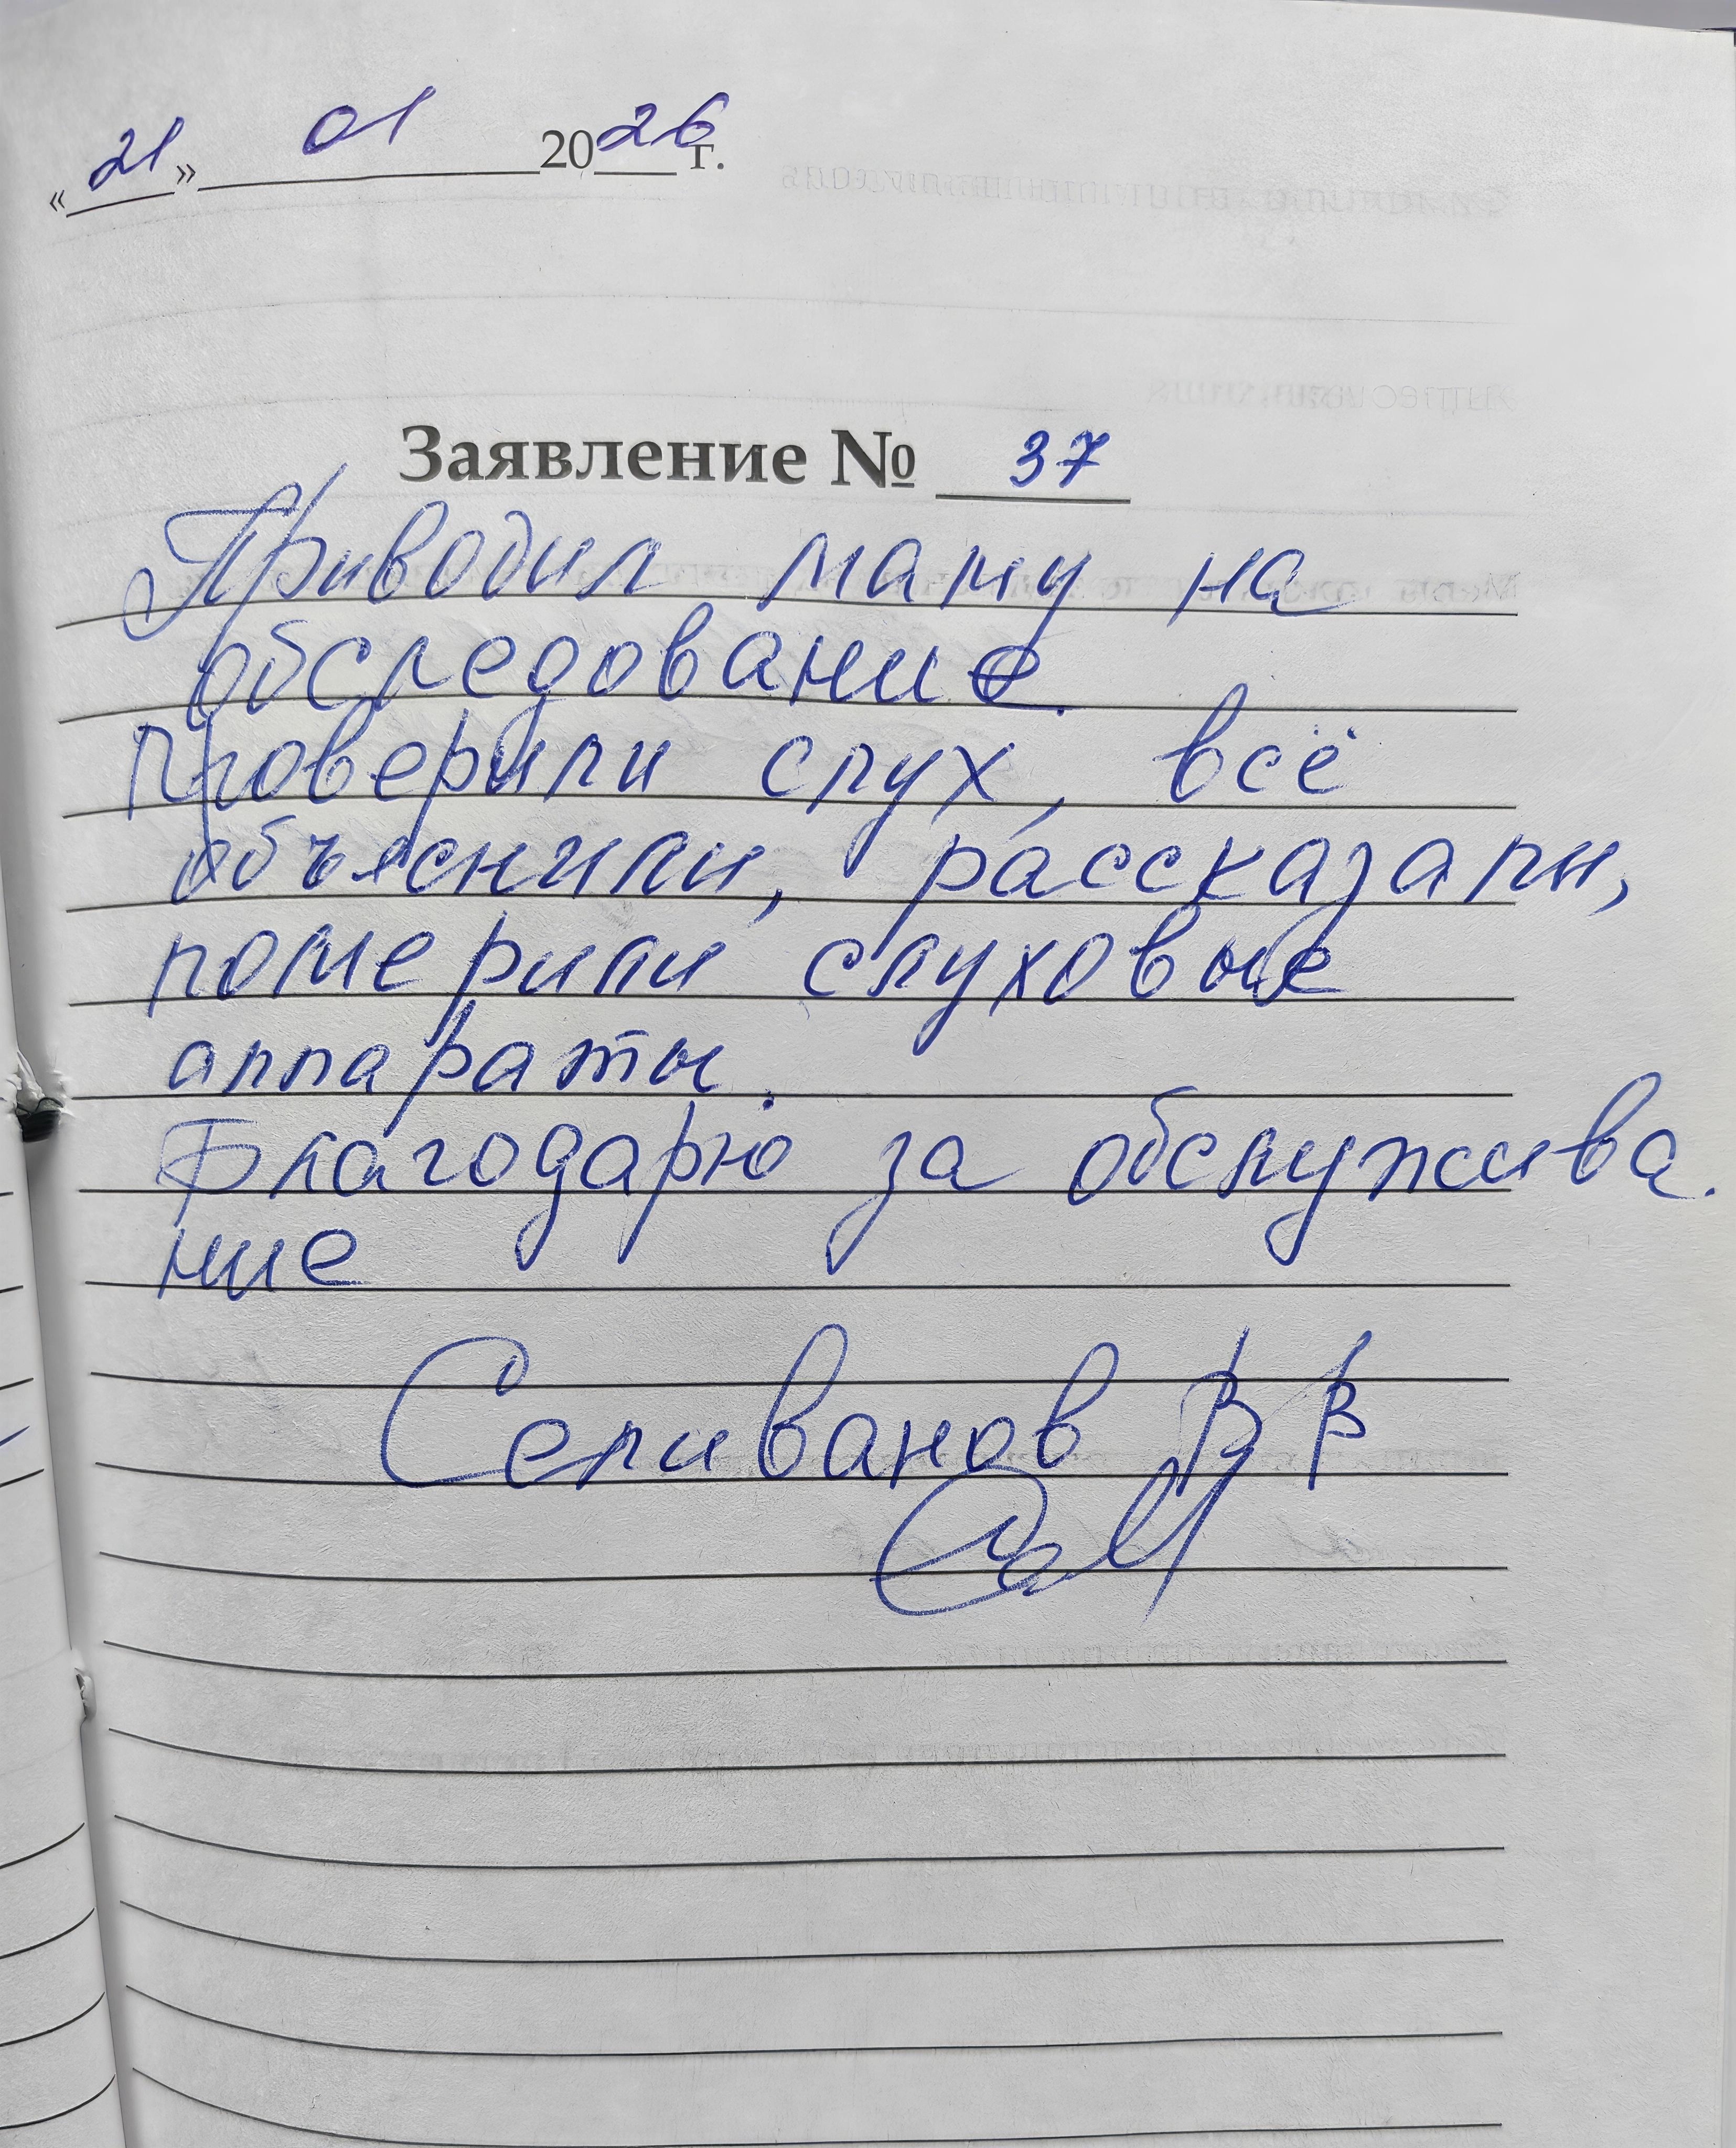 «21» 01 2026 г.
Заявление № 37
Приводил маму на
обследование.
Проверили слух, всё
объяснили, рассказали,
померили слуховые
аппараты.
Благодарю за обслужива
ние
Селиванов В В